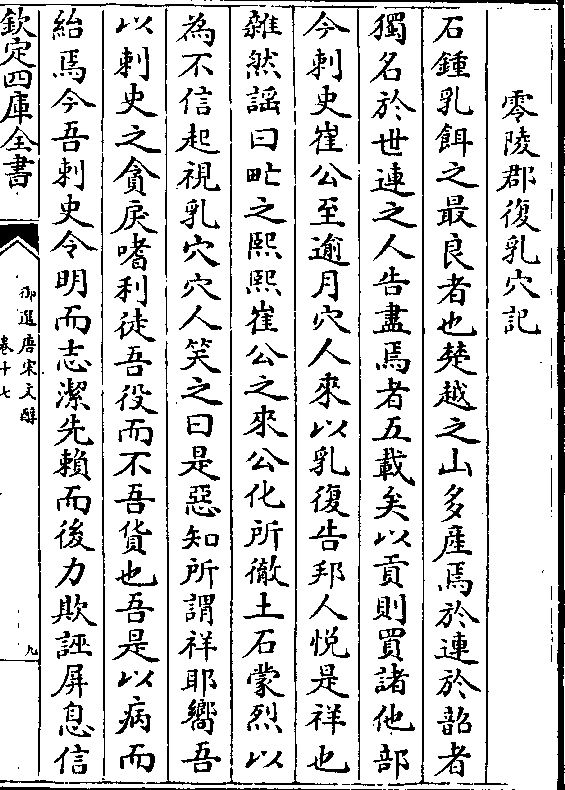 零陵郡復乳穴記
石鍾乳餌之最良者也楚越之山多產焉於連於韶者
獨名於世連之人告盡焉者五載矣以貢則買諸他部
今刺史崔公至逾月穴人來以乳復告邦人悅是祥也
雜然謡曰甿之熙熙崔公之來公化所徹土石蒙烈以
為不信起視乳穴穴人笑之曰是惡知所謂祥耶嚮吾
以刺史之貪戾嗜利徒吾役而不吾貨也吾是以病而
紿焉今吾刺史令明而志潔先賴而後力欺誣屏息信
欽定四庫全書
御選唐宋文醇
卷十七
九